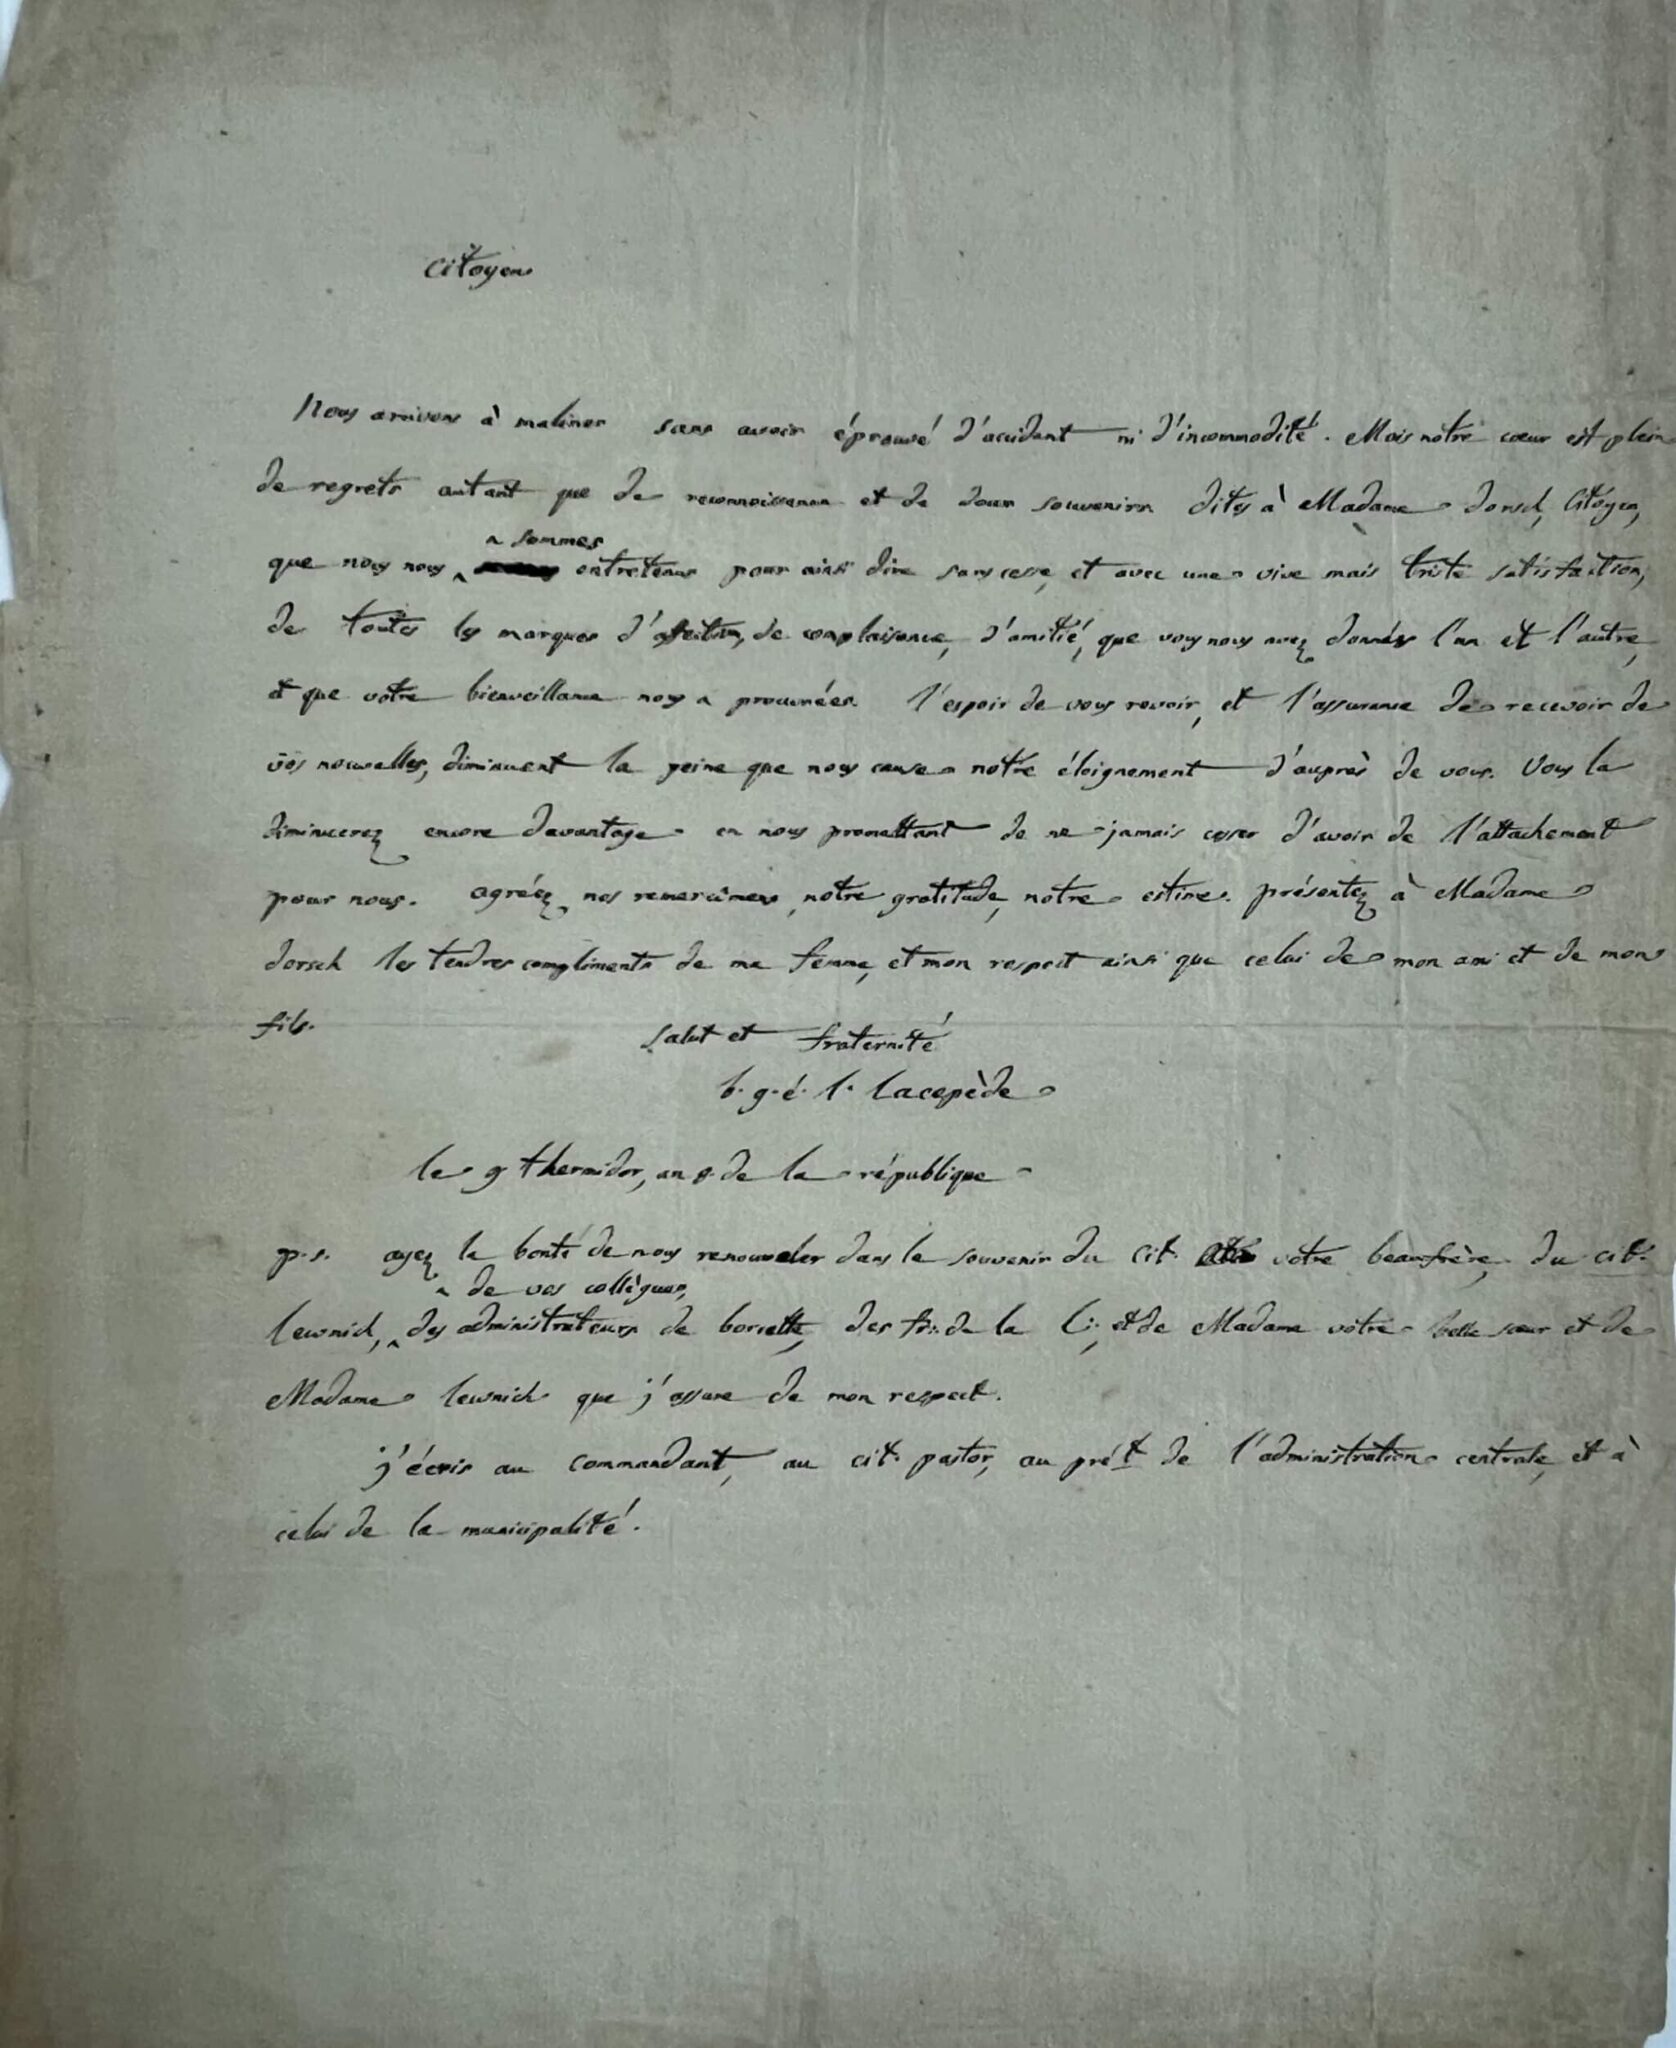 Citoyen
Nous arrivons à malines sans avoir éprouvé d'accident ni d'incommodité. Mais notre cœur est plein
de regrets autant que de reconnoissance et de doux souvenirs. dites à Madame dorsch, Citoyen,
que nous nous sommes entretenus pour ainsi dire sans cesse, et avec une vive mais triste satisfaction,
de toutes les marques d'affection, de complaisance, d'amitié, que vous nous avez données l'un et l'autre,
et que votre bienveillance nous a procurées. l'espoir de vous revoir, et l'assurance de recevoir de
vos nouvelles, diminuent la peine que nous cause notre éloignement d'auprès de vous. Vous la
diminuerez encore davantage en nous promettant de ne jamais cesser d'avoir de l'attachement
pour nous. agréez nos remercimens, notre gratitude, notre estime. présentez à Madame
dorsch les tendres compliments de ma femme, et mon respect ainsi que celui de mon ami et de mon
fils.
salut et fraternité
b. g. é. l. lacepède
le 9 thermidor, an de la république
p.s. ayez la bonté de nous renouveler dans le souvenir du cit. votre beaufrère, du cit.
de vos collègues,
lewnich, des administrateurs de borcette, des fr: de la L:, et de Madame votre belle sœur et de
Madame lewnich que j'assure de mon respect.
j'écris au commandant, au cit. pastor, au prét de l'administration centrale, et à
celui de la municipalité.